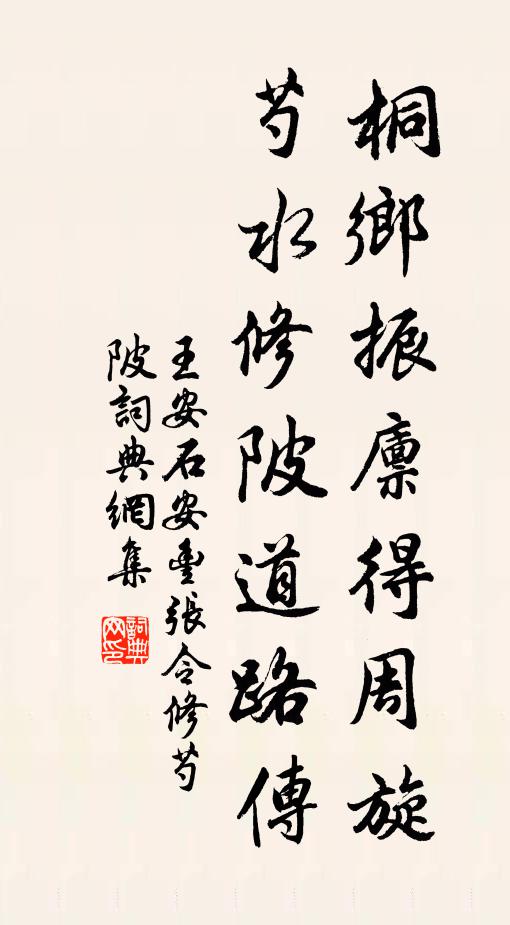 桐鄉振廩得周旋
芍水修陂道路傳
王安石安豐張令修芍
陂詞典網集
詞典網印